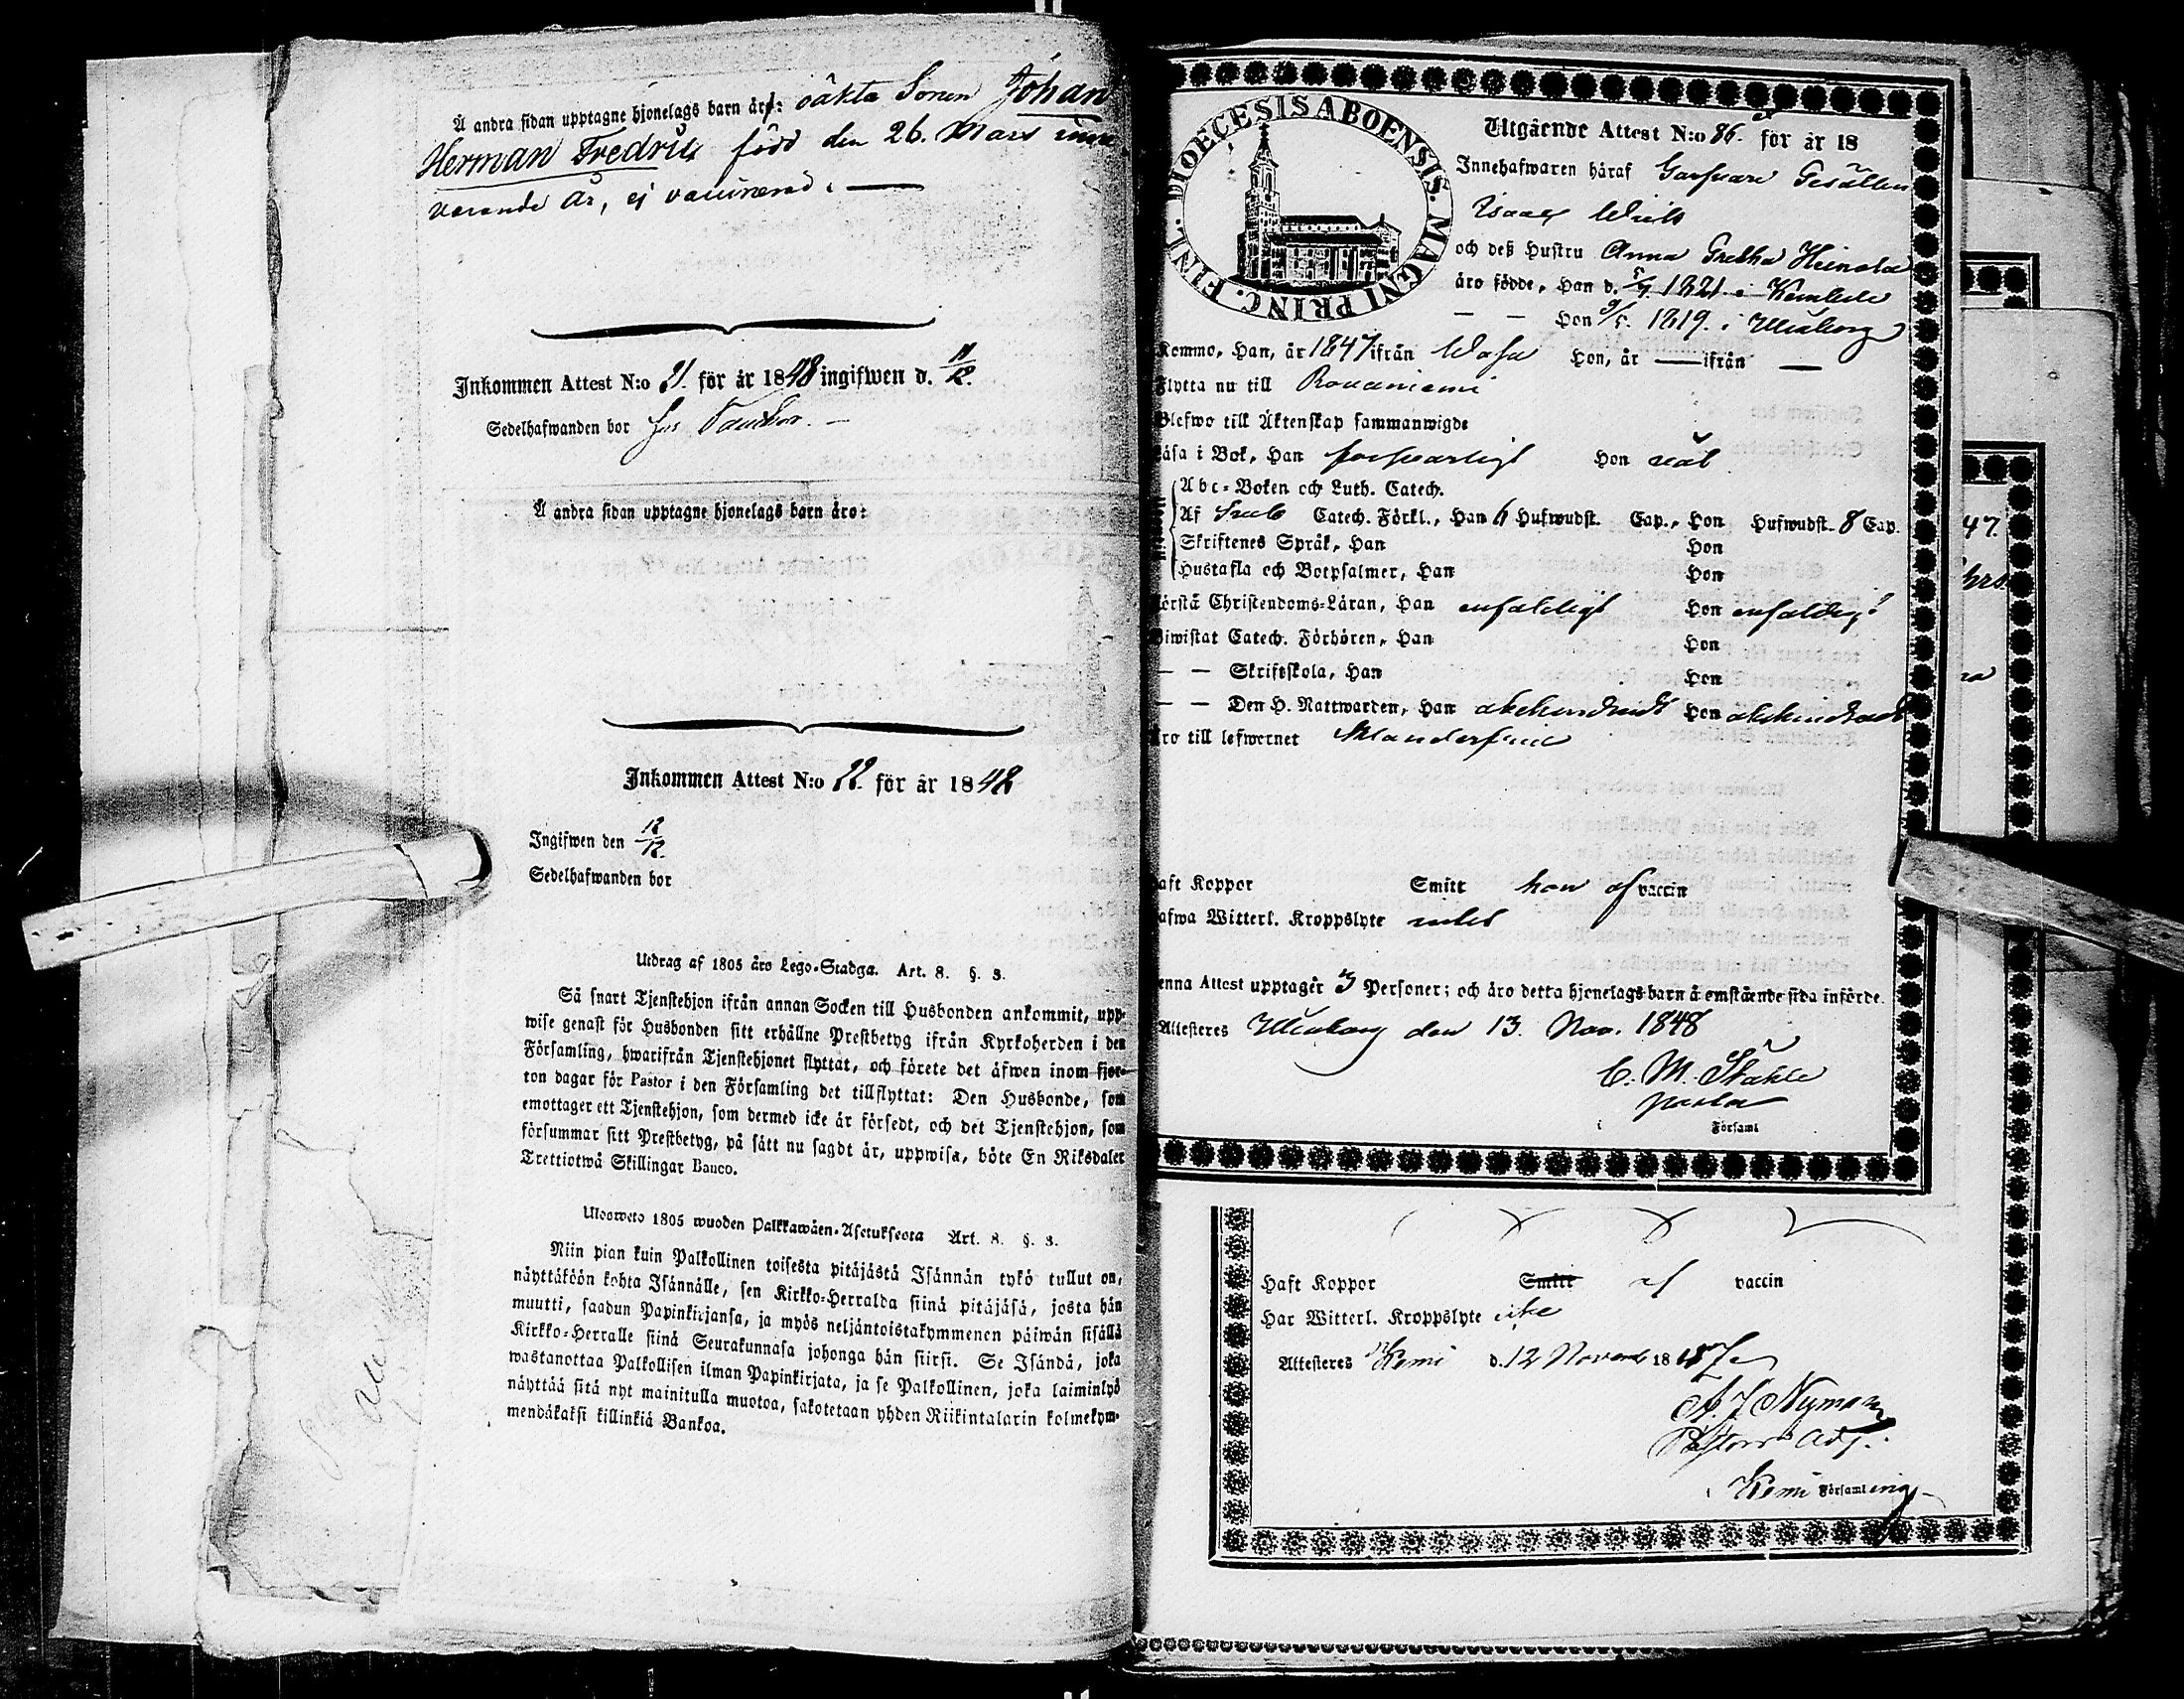 Å andra sidan upptagne hjonelags barn äro: oäkta Sonen Johan
Herman Fredric född den 26. Mars inne
varande år, ej vaccinerad.
Inkommen Attest N:o 21. för år 1848 ingifwen d. 11/12.
Sedelhafwanden bor
Å andra sidan upptagne hjonelags barn äro:
Inkommen Attest N:o 22. för år 1848
Ingifwen den 12/12.
Sedelhafwanden bor
Utdrag af 1805 års Lego-Stadga. Art. 8. §. 3.
Så snart Tjenstehjon ifrån annan Socken till Husbonden ankommit, upp-
wise genast för Husbonden sitt erhållne Prestbetyg ifrån Kyrkoherden i den
Församling, hwarifrån Tjenstehjonet flyttat, och förete det äfwen inom fjor-
ton dagar för Pastor i den Församling det tillflyttat: Den Husbonde, som
emottager ett Tjenstehjon, som dermed icke är försedt, och det Tjenstehjon, som
försummar sitt Prestbetyg, på sätt nu sagdt är, uppwisa, böte En Riksdaler
Trettiotwå Skillingar Banco.
Ulosweto 1805 wuoden Palkkawäen-Asetuksesta Art. 8. §. 3.
Niin pian kuin Palkollinen toisesta pitäjästä Isännän tykö tullut on,
näyttäköön kohta Isännälle, sen Kirkko-Herralda siinä pitäjäsä, josta hän
muutti, saadun Papinkirjansa, ja myös neljäntoistakymmenen päiwän sisällä
Kirkko-Herralle siinä Seurakunnasa johonga hän siirsi. Se Isändä, joka
wastanottaa Palkollisen ilman Papinkirjata, ja se Palkollinen, joka laiminlyö
näyttää sitä nyt mainitulla muotoa, sakotetaan yhden Riikintalarin kolmekym-
mendäkaksi killinkiä Bankoa.
DIOECESIS ABOENSIS. MAGNI PRINC. FINL.
Utgående Attest N:o 86. för år 18
Innehafwaren häraf Garfvare Gesällen
Isaac
och deß Hustru Anna Gretha Heinola
äro födde, Han d. 5/7. 1821. i Kemkele
— — Hon 9/5. 1819. i Uleåborg
Kommo, Han, år 1847 ifrån Wasa Hon, år — ifrån —
Flytta nu till Rovaniemi
Blefwo till Äktenskap sammanwigde
Läsa i Bok, Han försvarligt Hon väl
Abc-Boken och Luth. Catech.
Af Sveb Catech. Förkl., Han 6 Hufwudst. Cap., Hon Hufwudst. 8 Cap.
Skriftenes Språk, Han Hon
Hustafla och Botpsalmer, Han Hon
Förstå Christendoms-Läran, Han enfaldigt Hon enfaldigt
Biwistat Catech. Förhören, Han Hon
— — Skriftskola, Han Hon
— — Den H. Nattwarden, Han obehindradt Hon obehindradt
Äro till lefwernet klanderfrie
Haft Koppor Smitt hon af vaccin
Hafwa Witterl. Kroppslyte intet
Denna Attest upptager 3 Personer; och äro detta hjonelags barn å omstående sida införde.
Attesteres Uleåborg den 13. Nov. 1848
C. M. Ståhle
pastor
i Församl
Haft Koppor Smitt af vaccin
Har Witterl. Kroppslyte icke
Attesteres Kemi d. 12 Novemb 1847
A. J. Nyman
Pastors Adj.
i Kemi Församling
47.